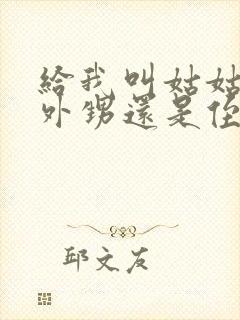 給我叫姑姑
外甥還是侄
邱文友